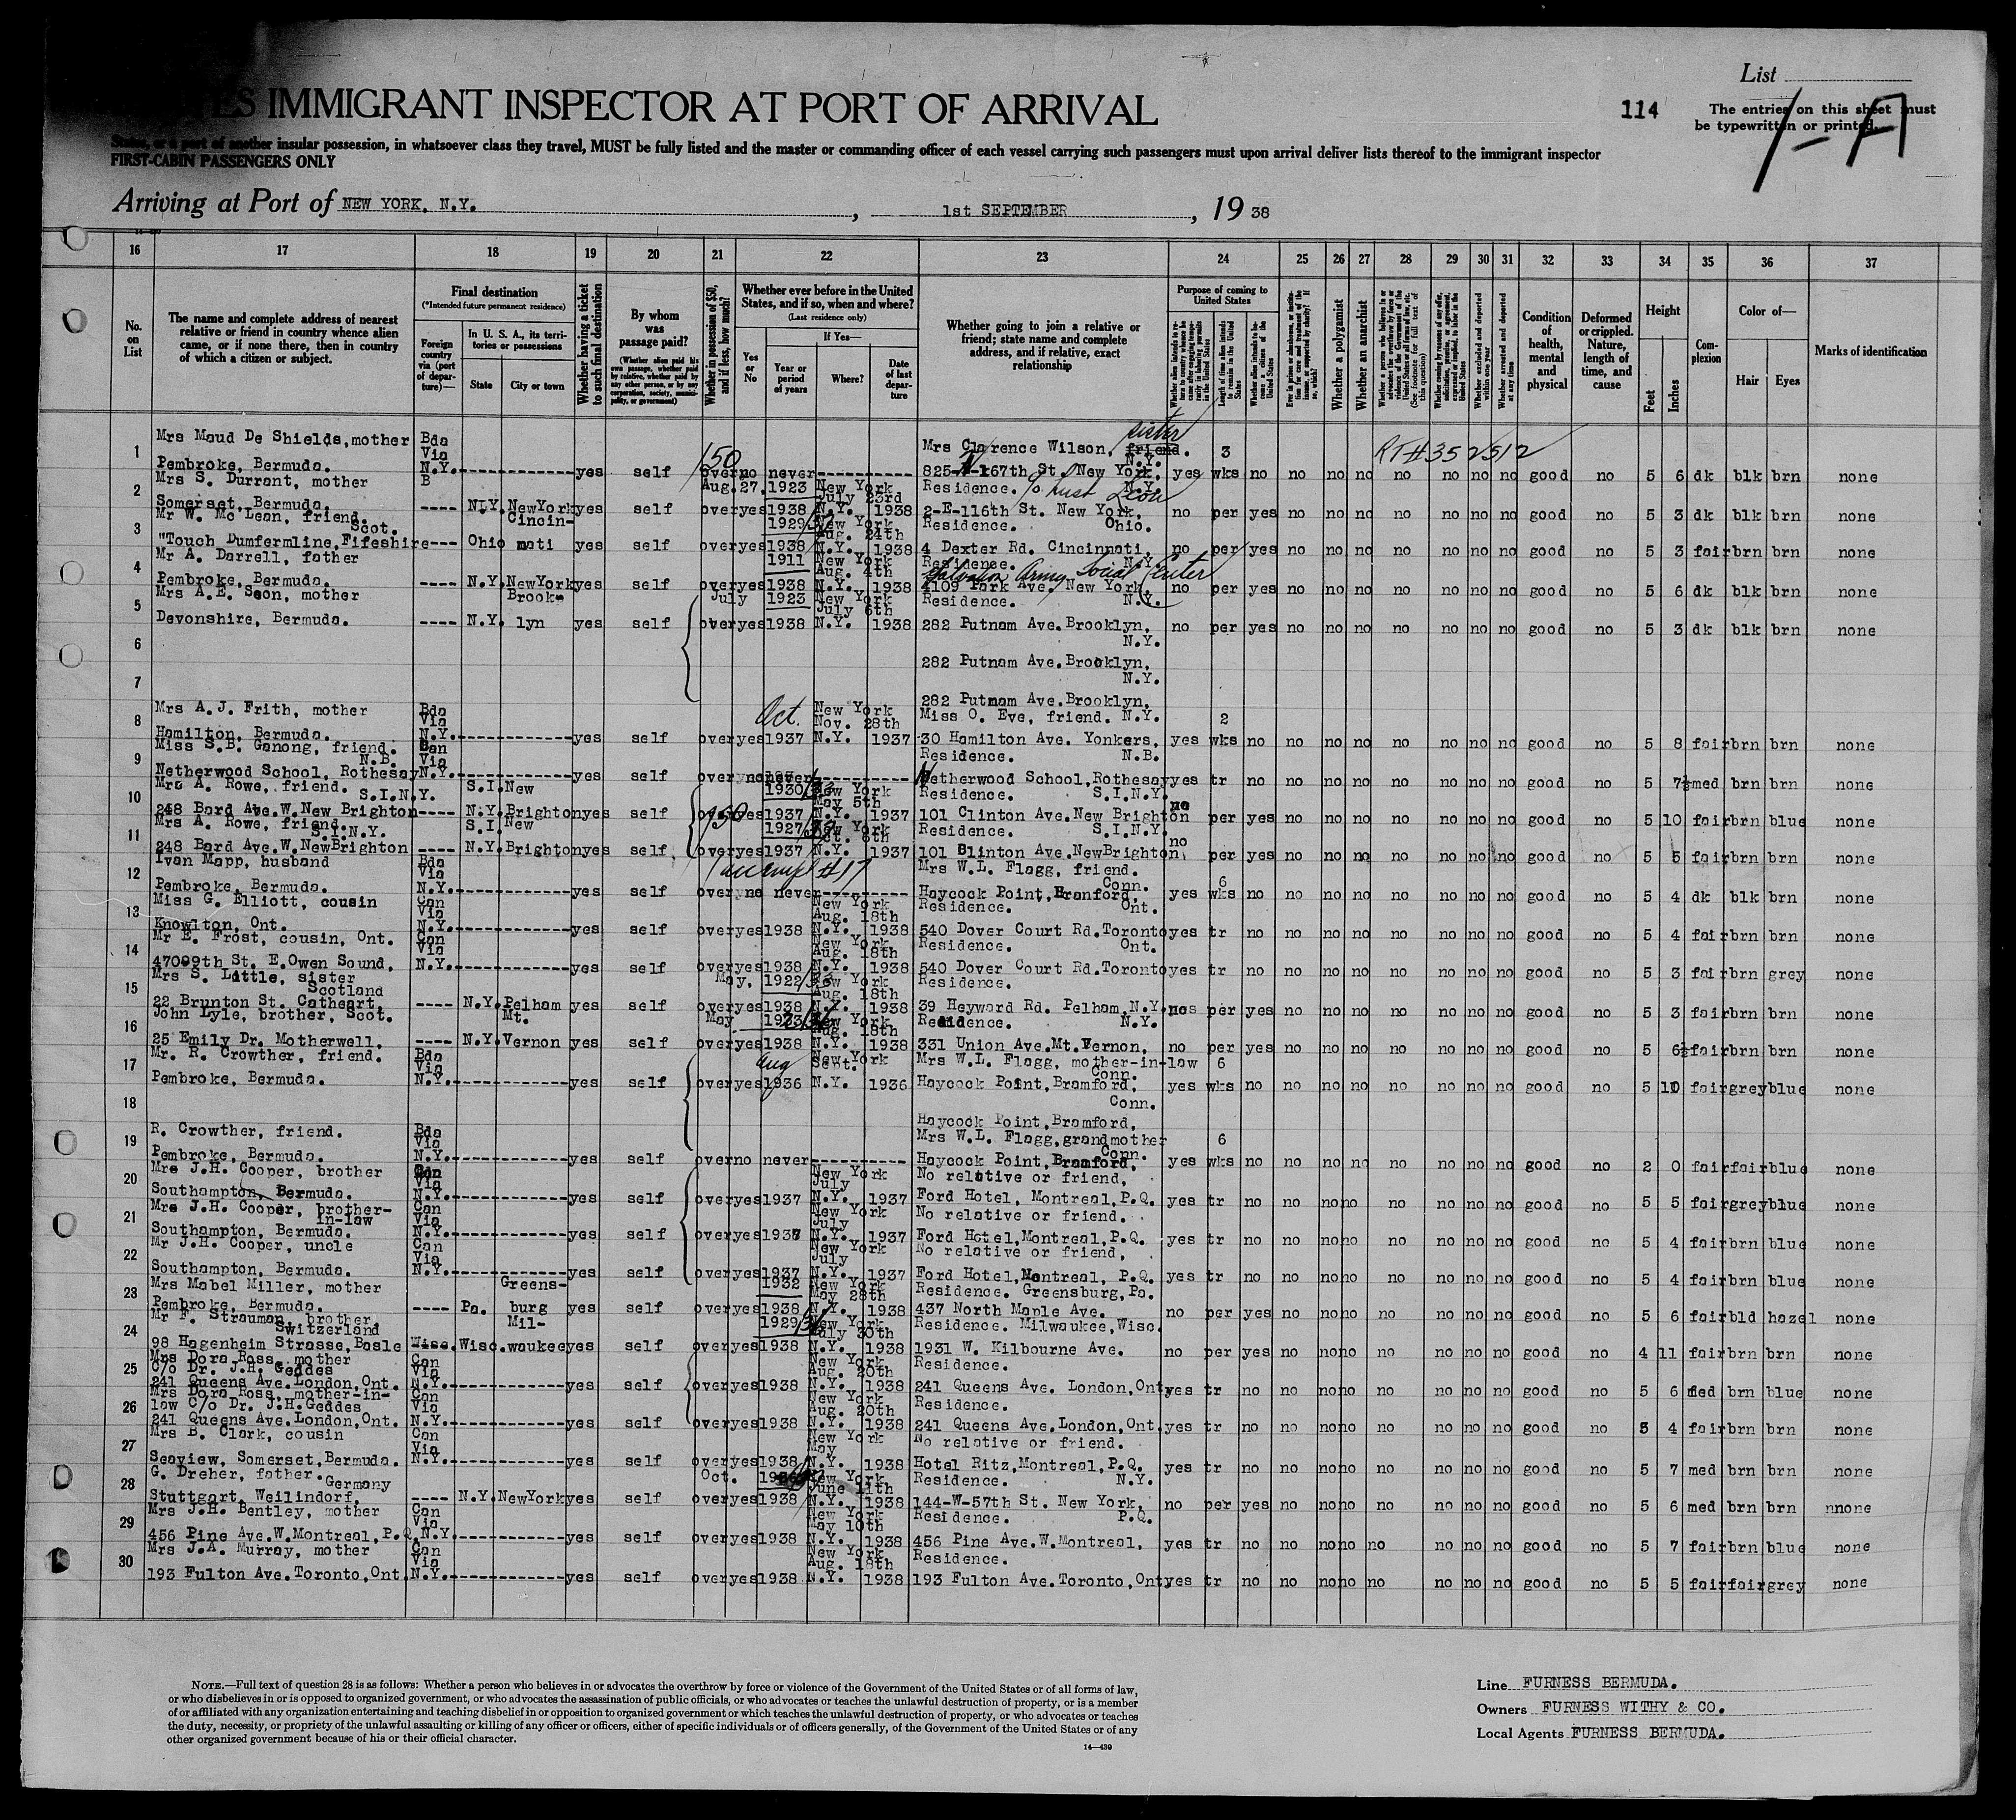 List
ES IMMIGRANT INSPECTOR AT PORT OF ARRIVAL
114
The entries on this sheet must
be typewritten or printed.
1-A
States, or a part of another insular possession, in whatsoever class they travel, MUST be fully listed and the master or commanding officer of each vessel carrying such passengers must upon arrival deliver lists thereof to the immigrant inspector
FIRST-CABIN PASSENGERS ONLY
Arriving at Port of NEW YORK, N.Y. , 1st SEPTEMBER , 19 38
16 17 18 19 20 21 22 23 24 25 26 27 28 29 30 31 32 33 34 35 36 37
No. on List
The name and complete address of nearest relative or friend in country whence alien came, or if none there, then in country of which a citizen or subject.
Final destination
(*Intended future permanent residence)
Foreign country via (port of departure)—
In U. S. A., its territories or possessions
State
City or town
Whether having a ticket to such final destination
By whom was passage paid?
(Whether alien paid his own passage, whether paid by relative, whether paid by any other person, or by any corporation, society, municipality, or government)
Whether in possession of $50, and if less, how much?
Whether ever before in the United States, and if so, when and where?
(Last residence only)
Yes or No
If Yes—
Year or period of years
Where?
Date of last departure
Whether going to join a relative or friend; state name and complete address, and if relative, exact relationship
Purpose of coming to United States
Length of time alien intends to remain in the United States
Whether alien intends to become a citizen of the United States
Whether a polygamist
Whether an anarchist
Whether excluded and deported within one year
Whether arrested and deported at any time
Condition of health, mental and physical
Deformed or crippled. Nature, length of time, and cause
Height
Feet
Inches
Complexion
Color of—
Hair
Eyes
Marks of identification
1 Mrs Maud De Shields, mother Bda Mrs Clarence Wilson, friend. sister 3 RT#352512
Via N.Y.
Pembroke, Bermuda. N.Y.------------- yes self 150 over no never----------- 825- 167th St. New York. yes wks no no no no no no no no good no 5 6 dk blk brn none
2 Mrs S. Durrant, mother B Aug. 27, 1923 New York Residence. N.Y.
July 23rd
Somerset, Bermuda. ---- N.Y. NewYork yes self over yes 1938 N.Y. 1938 2-E-116th St. New York, no per yes no no no no no no no good no 5 3 dk blk brn none
3 Mr W. Mc Lean, friend. Scot. Cincin- 1929 New York Residence. Ohio.
Aug. 24th
"Touch Dumfermline, Fifeshire --- Ohio nati yes self over yes 1938 N.Y. 1938 4 Dexter Rd. Cincinnati, no per yes no no no no no no no good no 5 3 fair brn brn none
4 Mr A. Darrell, father 1911 New York Residence. N.Y.
Aug. 4th Salvation Army Social Center
Pembroke, Bermuda. ---- N.Y. NewYork yes self over yes 1938 N.Y. 1938 4109 Park Ave. New York, no per yes no no no no no no no good no 5 6 dk blk brn none
5 Mrs A.E. Seon, mother Brook- July 1923 New York Residence. N.Y.
July 6th
Devonshire, Bermuda. ---- N.Y. lyn yes self over yes 1938 N.Y. 1938 282 Putnam Ave. Brooklyn, no per yes no no no no no no no good no 5 3 dk blk brn none
6 N.Y.
282 Putnam Ave. Brooklyn,
7 N.Y.
282 Putnam Ave. Brooklyn,
8 Mrs A.J. Frith, mother Bda Oct. New York Miss O. Eve, friend. N.Y. 2
Via Nov. 28th
Hamilton, Bermuda. N.Y.------------- yes self over yes 1937 N.Y. 1937 30 Hamilton Ave. Yonkers, yes wks no no no no no no no no good no 5 8 fair brn brn none
9 Miss S.B. Ganong, friend. N.B. Can Via Residence. N.B.
Netherwood School, Rothesay N.Y.------------- yes self over no never----------- Netherwood School, Rothesay yes tr no no no no no no no no good no 5 7½ med brn brn none
10 Mrs A. Rowe, friend. S.I.N.Y. S.I. New 1930 New York Residence. S.I.N.Y.
May 5th
248 Bard Ave. W. New Brighton ---- N.Y. Brighton yes self 150 over yes 1937 N.Y. 1937 101 Clinton Ave. New Brighton no per yes no no no no no no no good no 5 10 fair brn blue none
11 Mrs A. Rowe, friend. S.I.N.Y. S.I. New 1927 New York Residence. S.I.N.Y.
248 Bard Ave. W. NewBrighton ---- N.Y. Brighton yes self over yes 1937 N.Y. 1937 101 Blinton Ave. NewBrighton, no per yes no no no no no no no good no 5 5 fair brn brn none
12 Ivan Mapp, husband Bda Via Mrs W.L. Flagg, friend. Conn. 6
Pembroke, Bermuda. N.Y.------------- yes self over no never----------- Haycock Point, Branford, yes wks no no no no no no no no good no 5 4 dk blk brn none
13 Miss G. Elliott, cousin Can Via New York Residence. Ont.
Aug. 18th
Knowlton, Ont. N.Y.------------- yes self over yes 1938 N.Y. 1938 540 Dover Court Rd. Toronto yes tr no no no no no no no no good no 5 4 fair brn brn none
14 Mr E. Frost, cousin, Ont. Can Via New York Residence. Ont.
Aug. 18th
47009th St. E. Owen Sound, N.Y.------------- yes self over yes 1938 N.Y. 1938 540 Dover Court Rd. Toronto yes tr no no no no no no no no good no 5 3 fair brn grey none
15 Mrs S. Little, sister Scotland May, 1922 New York Residence.
Aug. 18th
22 Brunton St. Cathcart, ---- N.Y. Pelham yes self over yes 1938 N.Y. 1938 39 Heyward Rd. Pelham, N.Y. per yes no no no no no no no good no 5 3 fair brn brn none
16 John Lyle, brother, Scot. Mt. May 1923 New York Residence. N.Y.
Aug. 18th
25 Emily Dr. Motherwell, ---- N.Y. Vernon yes self over yes 1938 N.Y. 1938 331 Union Ave. Mt. Vernon, no per yes no no no no no no no good no 5 6½ fair brn brn none
17 Mr. R. Crowther, friend. Bda Via Aug New York Mrs W.L. Flagg, mother-in-law 6
Sept. Conn.
Pembroke, Bermuda. N.Y.------------- yes self over yes 1936 N.Y. 1936 Haycock Point, Bramford, yes wks no no no no no no no no good no 5 10 fair grey blue none
18 Conn.
Haycock Point, Bramford,
19 R. Crowther, friend. Bda Via Mrs W.L. Flagg, grandmother 6
Conn.
Pembroke, Bermuda. N.Y.------------- yes self over no never----------- Haycock Point, Bramford, yes wks no no no no no no no no good no 2 0 fair fair blue none
20 Mrs J.H. Cooper, brother Can Via New York No relative or friend,
July
Southampton, Bermuda. N.Y.------------- yes self over yes 1937 N.Y. 1937 Ford Hotel, Montreal, P.Q. yes tr no no no no no no no no good no 5 5 fair grey blue none
21 Mrs J.H. Cooper, brother-in-law Can Via New York No relative or friend.
July
Southampton, Bermuda. N.Y.------------- yes self over yes 1937 N.Y. 1937 Ford Hotel, Montreal, P.Q. yes tr no no no no no no no no good no 5 4 fair brn blue none
22 Mr J.H. Cooper, uncle Can Via New York No relative or friend,
July
Southampton, Bermuda. N.Y.------------- yes self over yes 1937 N.Y. 1937 Ford Hotel, Montreal, P.Q. yes tr no no no no no no no no good no 5 4 fair brn blue none
23 Mrs Mabel Miller, mother Greens- 1932 New York Residence. Greensburg, Pa.
May 28th
Pembroke, Bermuda. ---- Pa. burg yes self over yes 1938 N.Y. 1938 437 North Maple Ave. no per yes no no no no no no no good no 5 6 fair bld hazel none
24 Mr F. Strauman, brother, Switzerland Mil- 1929 New York Residence. Milwaukee, Wisc.
July 30th
98 Hagenheim Strasse, Basle Wisc. Wisc. waukee yes self over yes 1938 N.Y. 1938 1931 W. Kilbourne Ave. no per yes no no no no no no no good no 4 11 fair brn brn none
25 Mrs Dora Ross, mother Can New York Residence.
C/o Dr. J.H. Geddes Via Aug. 20th
241 Queens Ave. London, Ont. N.Y.------------- yes self over yes 1938 N.Y. 1938 241 Queens Ave. London, Ont. yes tr no no no no no no no no good no 5 6 med brn blue none
26 Mrs Dora Ross, mother-in- Can New York Residence.
law C/o Dr. J.H. Geddes Via Aug. 20th
241 Queens Ave. London, Ont. N.Y.------------- yes self over yes 1938 N.Y. 1938 241 Queens Ave. London, Ont. yes tr no no no no no no no no good no 5 4 fair brn brn none
27 Mrs B. Clark, cousin Can Via New York No relative or friend.
May
Seaview, Somerset, Bermuda. N.Y.------------- yes self over yes 1938 N.Y. 1938 Hotel Ritz, Montreal, P.Q. yes tr no no no no no no no no good no 5 7 med brn brn none
28 G. Dreher, father. Germany Oct. New York Residence. N.Y.
June 11th
Stuttgart, Weilindorf, ---- N.Y. NewYork yes self over yes 1938 N.Y. 1938 144-W-57th St. New York, no per yes no no no no no no no good no 5 6 med brn brn nnone
29 Mrs J.H. Bentley, mother Can Via New York Residence. P.Q.
May 10th
456 Pine Ave. W. Montreal, P.Q. N.Y.------------- yes self over yes 1938 N.Y. 1938 456 Pine Ave. W. Montreal, yes tr no no no no no no no no good no 5 7 fair brn blue none
30 Mrs J.A. Murray, mother Can Via New York Residence.
Aug. 18th
193 Fulton Ave. Toronto, Ont. N.Y.------------- yes self over yes 1938 N.Y. 1938 193 Fulton Ave. Toronto, Ont. yes tr no no no no no no no no good no 5 5 fair fair grey none
NOTE.—Full text of question 28 is as follows: Whether a person who believes in or advocates the overthrow by force or violence of the Government of the United States or of all forms of law,
or who disbelieves in or is opposed to organized government, or who advocates the assassination of public officials, or who advocates or teaches the unlawful destruction of property, or is a member
of or affiliated with any organization entertaining and teaching disbelief in or opposition to organized government or which teaches the unlawful destruction of property, or who advocates or teaches
the duty, necessity, or propriety of the unlawful assaulting or killing of any officer or officers, either of specific individuals or of officers generally, of the Government of the United States or of any
other organized government because of his or their official character.
14—430
Line FURNESS BERMUDA.
Owners FURNESS WITHY & CO.
Local Agents FURNESS BERMUDA.